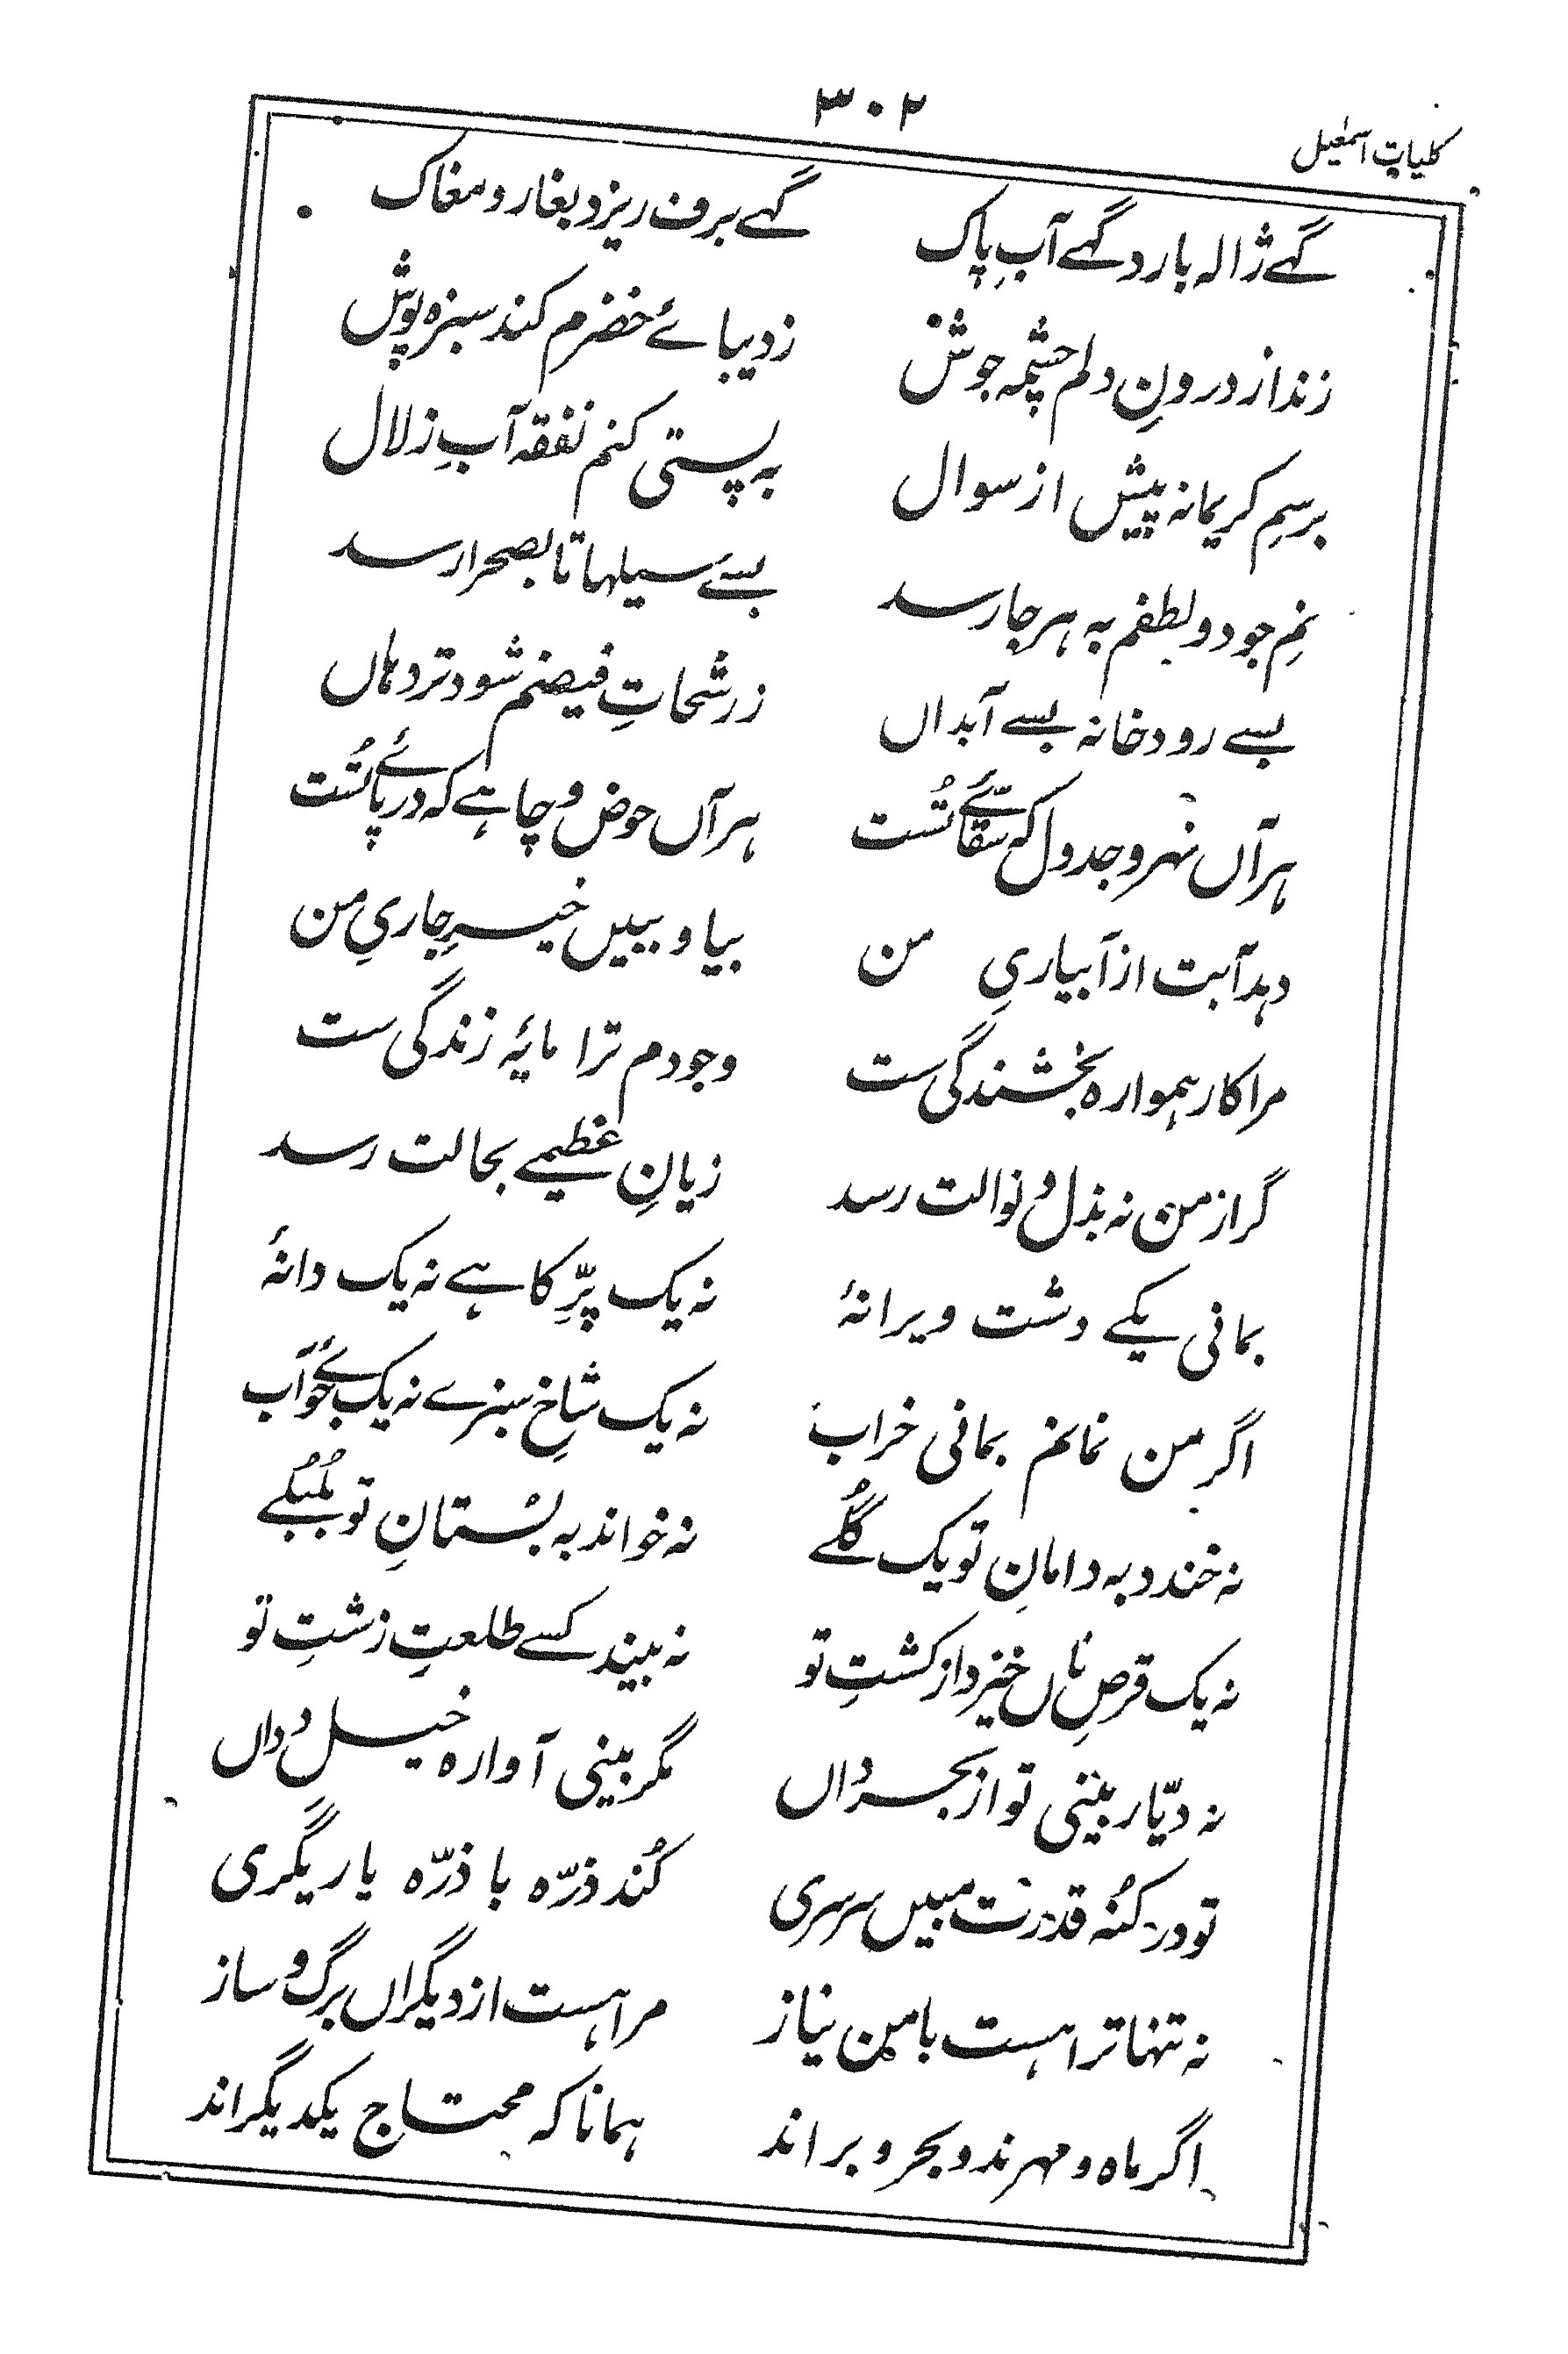 ۳۰۲
کلیاتِ اسمٰعیل
گہے ژالہ بارد گہے آبِ پاک
گہے برف ریزد بغار و مغاک
زند از درونِ دلم چشمہ جوش
ز دیبائے خضرم کند سبزہ پوش
برسمِ کریمانہ پیش از سوال
بہ پستی کنم نفقہ آبِ زلال
نمِ جود و لطفم بہ ہر جا رسد
بسے سیلہا تا بصحرا رسد
بسے رودخانہ بسے آبداں
ز رشحاتِ فیضم شود تر دہاں
ہر آں نہر و جدول کہ سقّائے تُست
ہر آں حوض و چاہے کہ در پائے تُست
دہد آبت از آبیاریِ من
بیا و ببیں خیرِ جاریِ من
مرا کار ہموارہ بخشندگی ست
وجودم ترا مایۂ زندگی ست
گر از من نہ بذل و نوالت رسد
زیانِ عظیمے بحالت رسد
بمانی یکے دشت ویرانۂ
نہ یک پرِّ کاہے نہ یک دانۂ
اگر من نمانم بمانی خراب
نہ یک شاخِ سبزے نہ یک جوئے آب
نہ خندد بہ دامانِ تو یک گُلے
نہ خواند بہ بُستانِ تو بُلبُلے
نہ یک قرصِ ناں خیزد از کشتِ تو
نہ بیند کسے طلعتِ زشتِ تو
نہ دیّار بینی تو از بخرداں
مگر بینی آوارہ خیلِ دداں
تو در کُنہ قدرت مبیں سرسری
کُند ذرّہ با ذرّہ یاریگری
نہ تنہا ترا ہست با من نیاز
مرا ہست از دیگراں برگ و ساز
اگر ماہ و مہرند و بحر و بر اند
ہمانا کہ محتاج یکدیگر اند